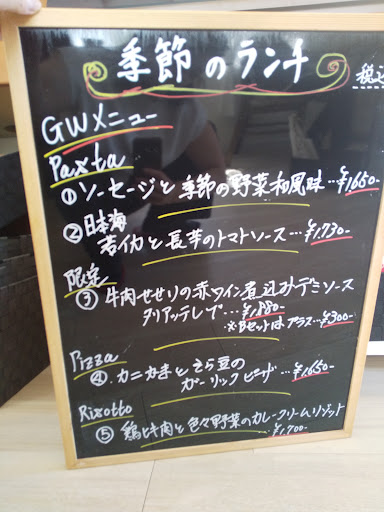 季節のランチ
税込
GWメニュー
Pasta
①ソーセージと季節の野菜和風味…¥1,650-
②日本海
麦イカと長芋のトマトソース…¥1,730-
限定
③牛肉せせりの赤ワイン煮込みデミソース
タリアッテレで…¥1,880-
※Bセットはプラス…¥300-
Pizza
④カニカまとそら豆の
ガーリックピザ…¥1,650-
Risotto
⑤鶏ヒキ肉と色々野菜のカレークリームリゾット
¥1,700-